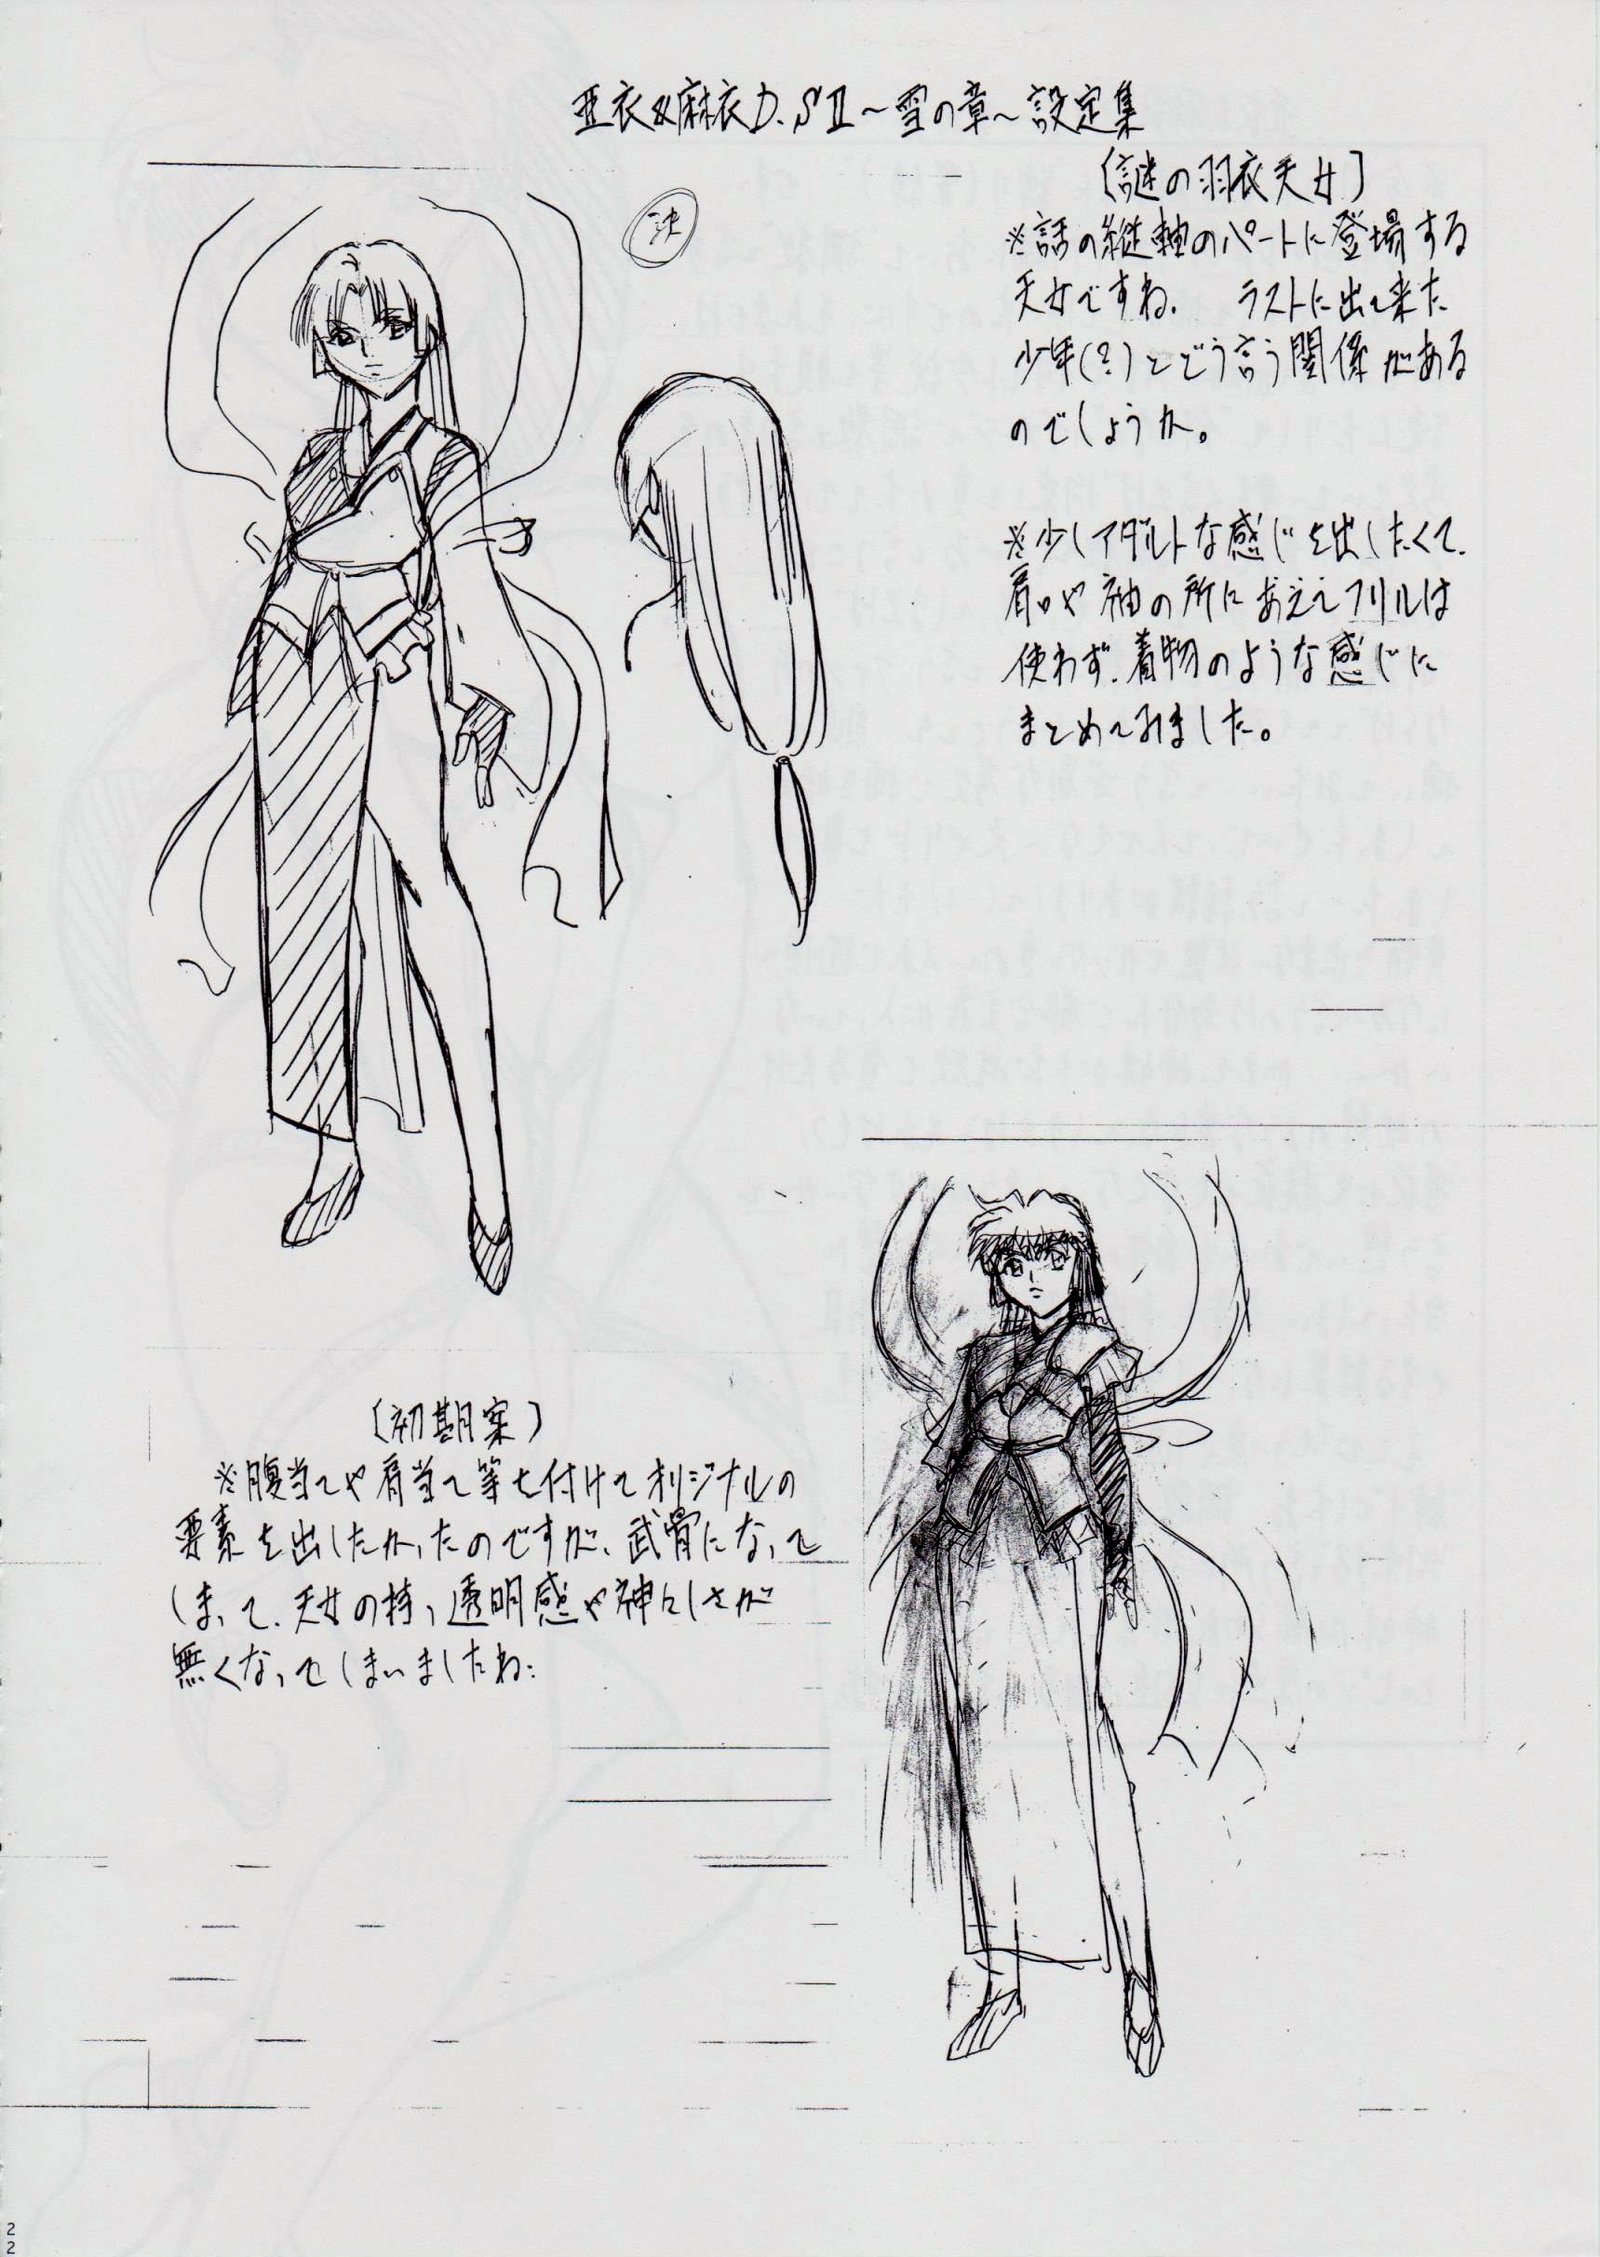 亜衣&麻衣D.SⅡ～雪の章～設定集
決
〔謎の羽衣天女〕
※話の縦軸のパートに登場する
天女ですね. ラストに出て来た
少年(?)とどう言う関係がある
のでしょうか。
※少しアダルトな感じを出したくて.
肩や袖の所にあえてフリルは
使わず.着物のような感じに
まとめてみました。
〔初期案〕
※腹当てや肩当て等を付けてオリジナルの
要素を出したかったのですが、武骨になって
しまって.天女の持つ透明感や神々しさが
無くなってしまいましたね:
22